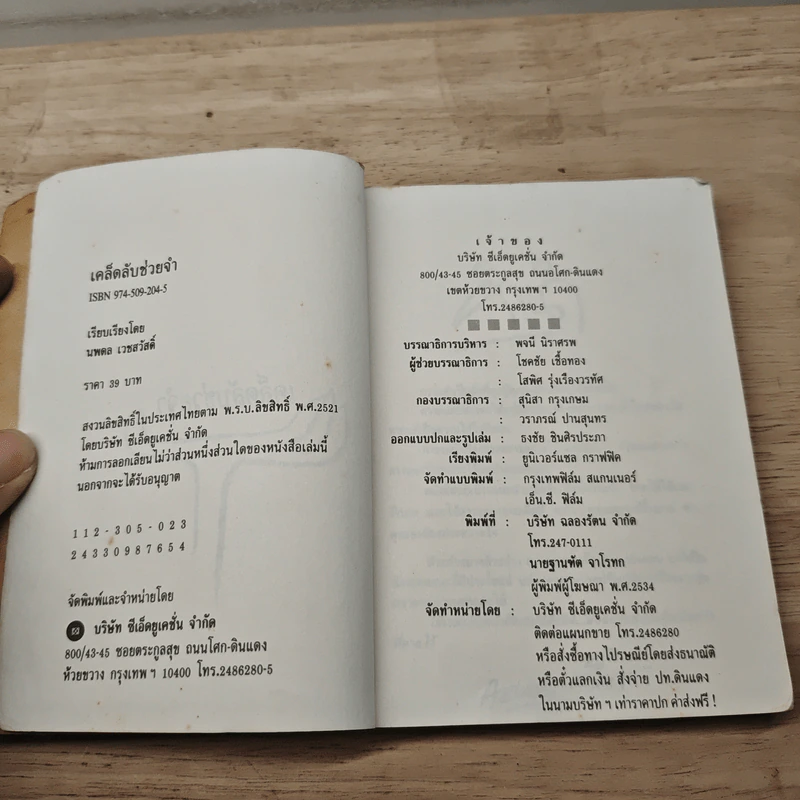 เคล็ดลับช่วยจำ
ISBN 974-509-204-5
เรียบเรียงโดย
นพดล เวชสวัสดิ์
ราคา 39 บาท
สงวนลิขสิทธิ์ในประเทศไทยตาม พ.ร.บ.ลิขสิทธิ์ พ.ศ.2521
โดยบริษัท ซีเอ็ดยูเคชั่น จำกัด
ห้ามการลอกเลียนไม่ว่าส่วนหนึ่งส่วนใดของหนังสือเล่มนี้
นอกจากจะได้รับอนุญาต
112-305-023
24330987654
จัดพิมพ์และจำหน่ายโดย
บริษัท ซีเอ็ดยูเคชั่น จำกัด
800/43-45 ซอยตระกูลสุข ถนนโศก-ดินแดง
ห้วยขวาง กรุงเทพ ฯ 10400 โทร.2486280-5
เจ้าของ
บริษัท ซีเอ็ดยูเคชั่น จำกัด
800/43-45 ซอยตระกูลสุข ถนนอโศก-ดินแดง
เขตห้วยขวาง กรุงเทพ ฯ 10400
โทร.2486280-5
บรรณาธิการบริหาร : พจนี นิราศรพ
ผู้ช่วยบรรณาธิการ : โชคชัย เชื้อทอง
: โสพิศ รุ่งเรืองวรทัศ
กองบรรณาธิการ : สุนิสา กรุงเกษม
: วราภรณ์ ปานสุนทร
ออกแบบปกและรูปเล่ม : ธงชัย ชินศิรประภา
เรียงพิมพ์ : ยูนิเวอร์แซล กราฟฟิค
จัดทำแบบพิมพ์ : กรุงเทพฟิล์ม สแกนเนอร์
เอ็น.ซี. ฟิล์ม
พิมพ์ที่ : บริษัท ฉลองรัตน จำกัด
โทร.247-0111
นายฐานฑัต จาโรทก
ผู้พิมพ์ผู้โฆษณา พ.ศ.2534
จัดจำหน่ายโดย : บริษัท ซีเอ็ดยูเคชั่น จำกัด
ติดต่อแผนกขาย โทร.2486280
หรือสั่งซื้อทางไปรษณีย์โดยส่งธนาณัติ
หรือตั๋วแลกเงิน สั่งจ่าย ปท.ดินแดง
ในนามบริษัท ฯ เท่าราคาปก ค่าส่งฟรี !